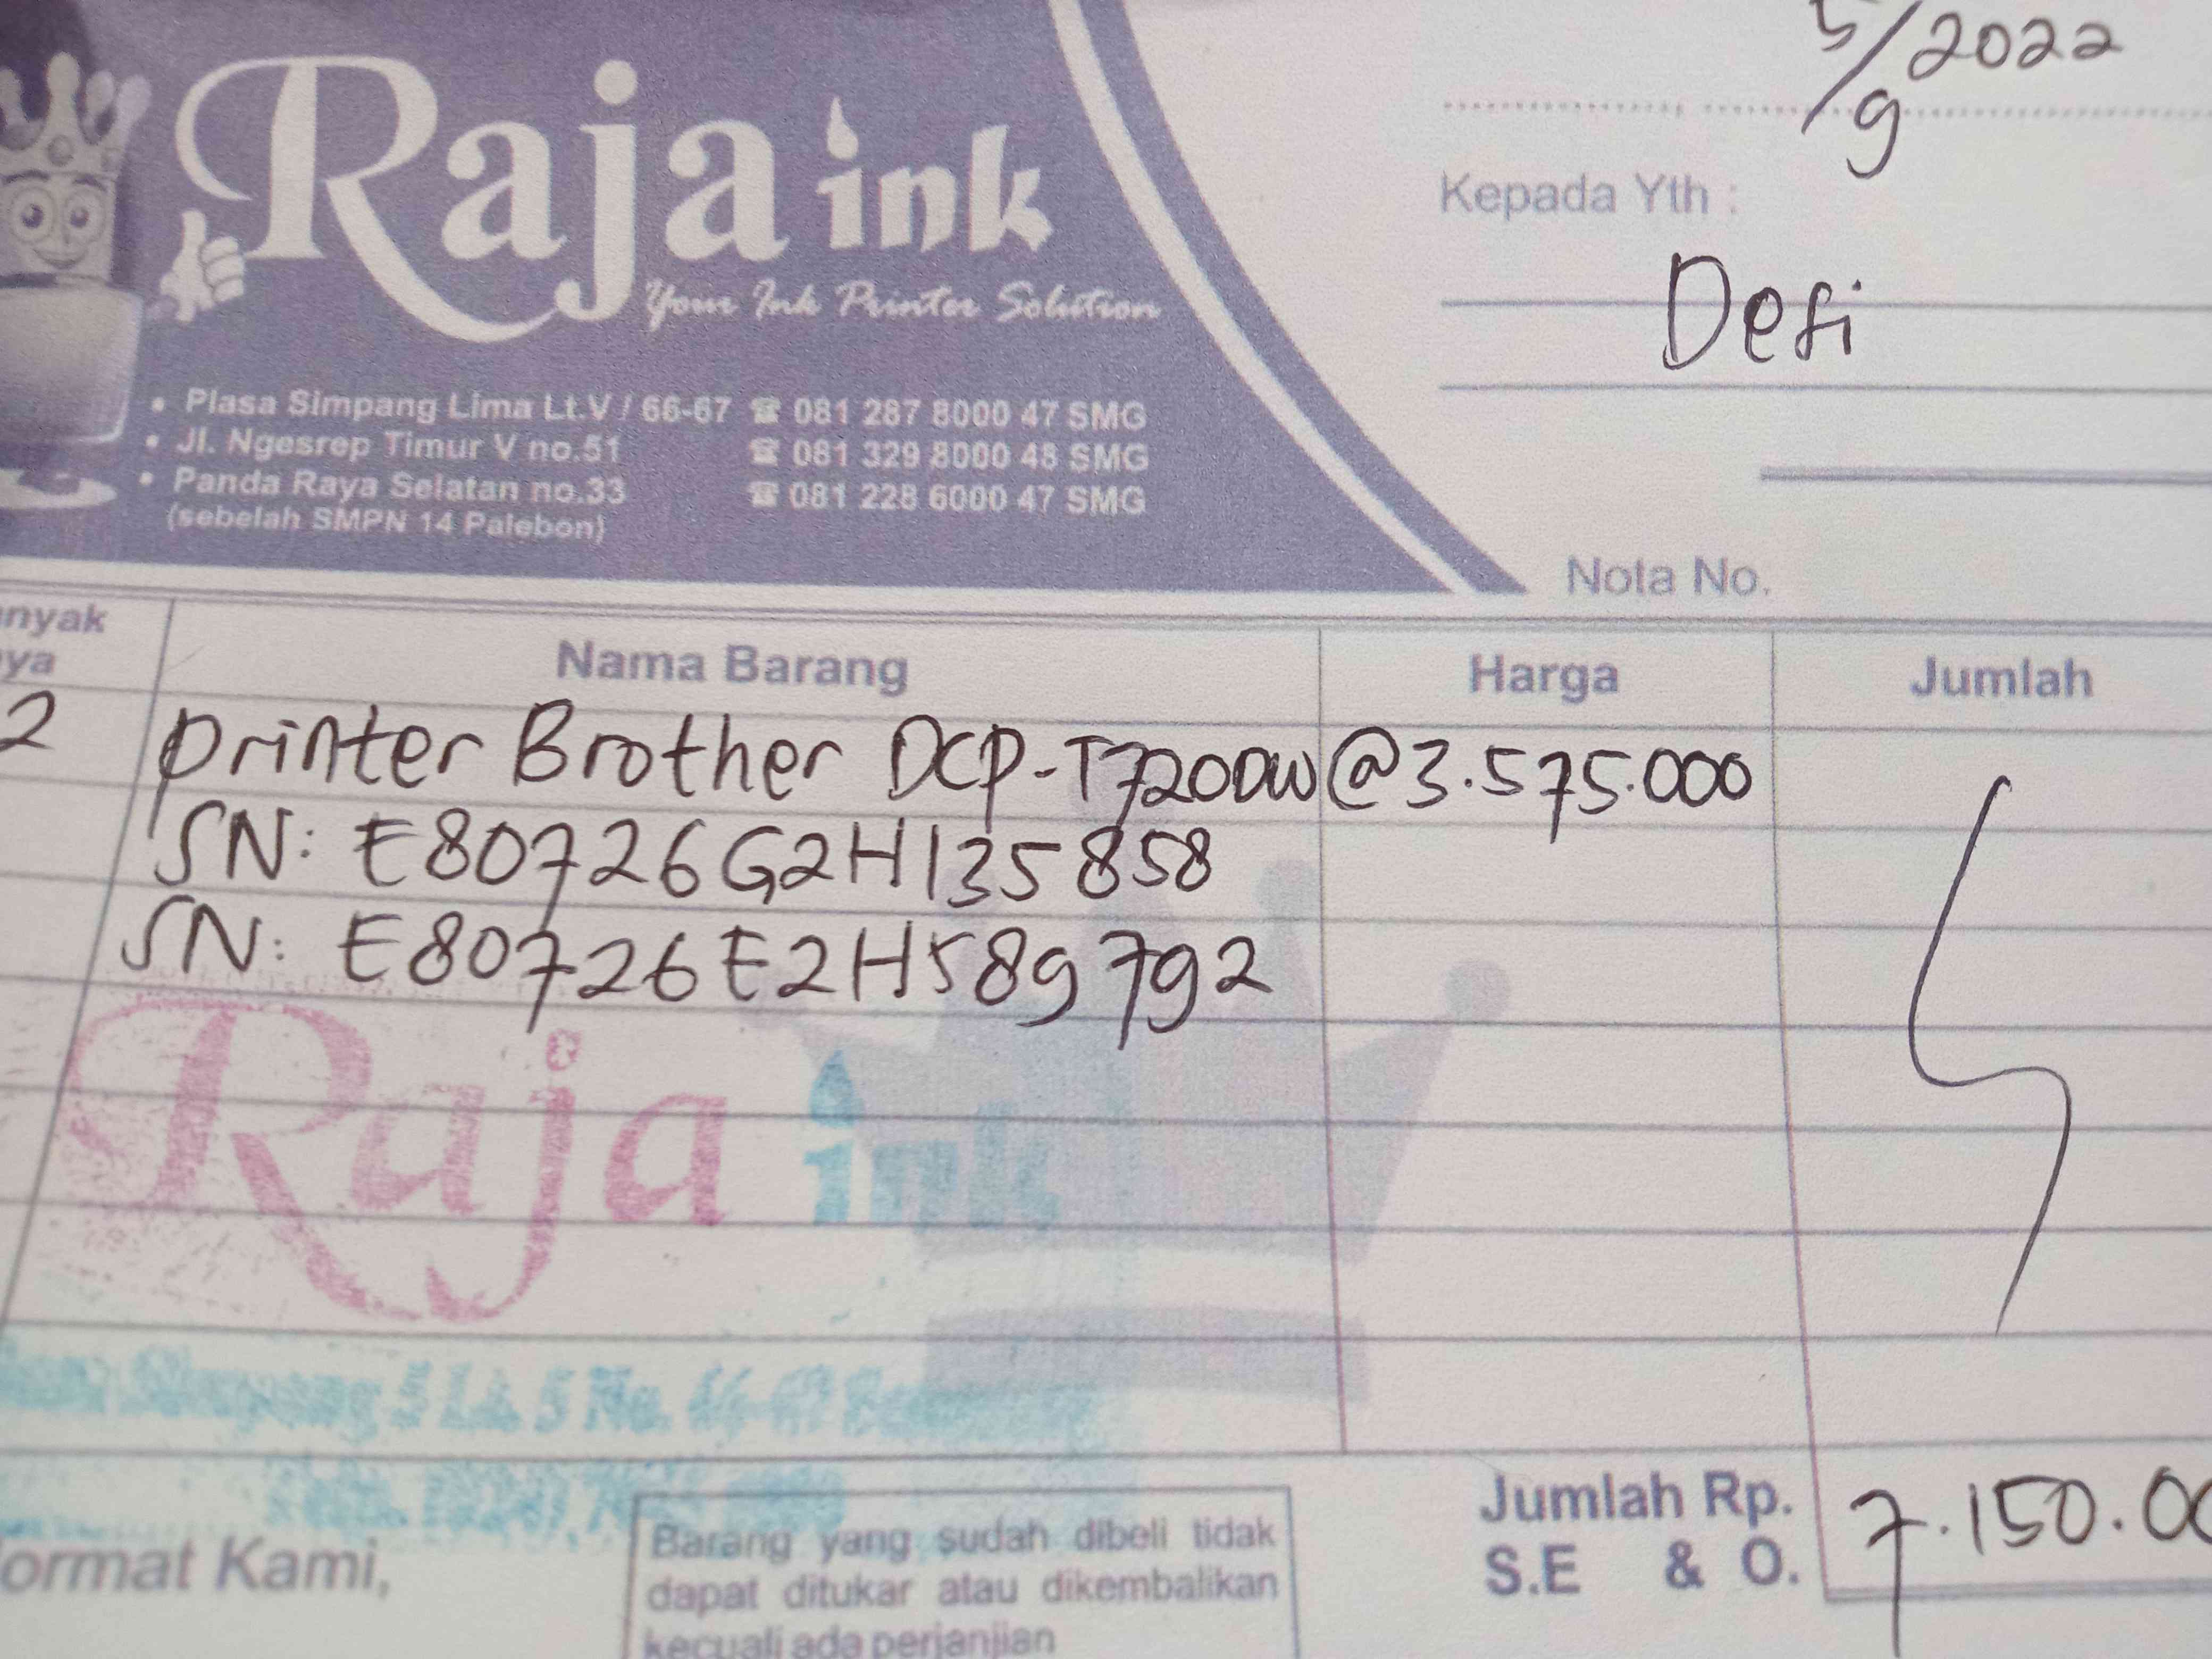 5/9 2022
Raja ink
Your Ink Printer Solution
Kepada Yth :
Desi
• Plasa Simpang Lima Lt.V / 66-67 ☎ 081 287 8000 47 SMG
• Jl. Ngesrep Timur V no.51 ☎ 081 329 8000 48 SMG
• Panda Raya Selatan no.33 ☎ 081 228 6000 47 SMG
(sebelah SMPN 14 Palebon)
Nota No.
anyak
ya
Nama Barang Harga Jumlah
2 printer Brother DCP-T720DW @3.575.000
SN: E80726G2H135858
SN: E80726E2H589792
Raja ink
Simpang 5 Lt. 5 No. 66-67
Jumlah Rp. 7.150.00
S.E & O.
ormat Kami,
Barang yang sudah dibeli tidak
dapat ditukar atau dikembalikan
kecuali ada perjanjian